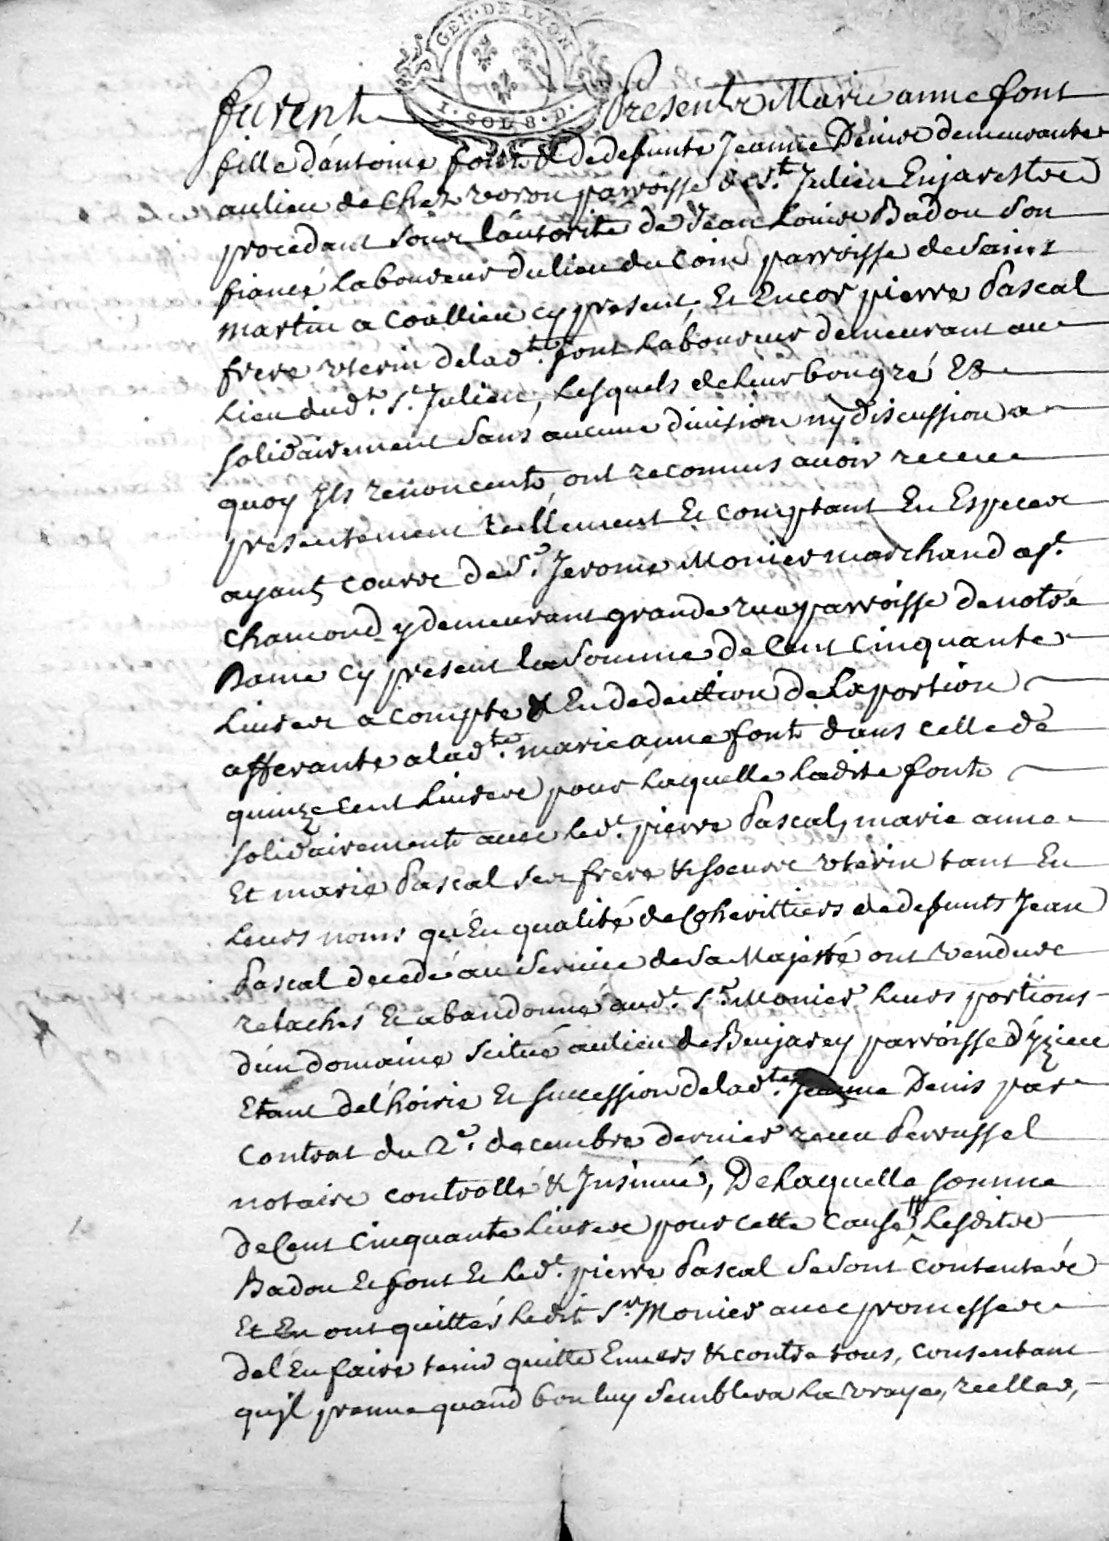 GEN. DE LYON
I. SOL 8. D.
furent Presents Marie anne font
fille d'antoine font & de defunte Jeanne Denis demeurante
au lieu de Chez voron parroisse de St. Julien Enjarest
procedant sous l'autorité de Jean Louis Badou Son
fiancé Laboureur du lieu du Coin parroisse de Saint
martin a Coallieu cy present, Et Encor pierre Pascal
frere vterin de lad.te font Laboureur demeurant au
Lieu dud.t St. Julien, Lesquels de leur bon gré Et
solidairement Sans aucune diuision ny discussion a
quoy Ils renoncent, ont reconnus auoir receu
presentement reellement Et comptant En Especes
ayant cours de Sr. Jerome Monier marchand a St.
chamond y demeurant grande rue parroisse de notre
Dame cy present la Somme de Cent Cinquante
Liures a compte & En deduction de La portion
afferante a lad.te marie anne font dans celle de
quinze cent Liures pour Laquelle Ladite font
solidairement auec led.t pierre Pascal, marie anne
Et marie Pascal ses frere & soeurs vterin tant En
Leurs noms qu'En qualité de Coheritiers de defunts Jean
Pascal decedé au Seruice de Sa Majesté ont vendus
relachés Et abandonné aud.t Sr. Monier Leurs portions
d'un domaine scitué au lieu de Benjarey parroisse d'yzieu
Etant de l'hoirie Et succession de lad.te Jeanne Denis par
Contrat du 2e. decembre dernier receu Perrussel
notaire controllé & Insinué, De Laquelle somme
de Cent Cinquante Liures pour cette Cause Lesdits
Badou Et font Et Led.t pierre Pascal Se sont Contentés
Et En ont quitté Ledit Sr. Monier auec promesses
de l'En faire tenir quitte Enuers & contre tous, consentant
qu'jl prenne quand bon luy Semblera La vraye, reelle,